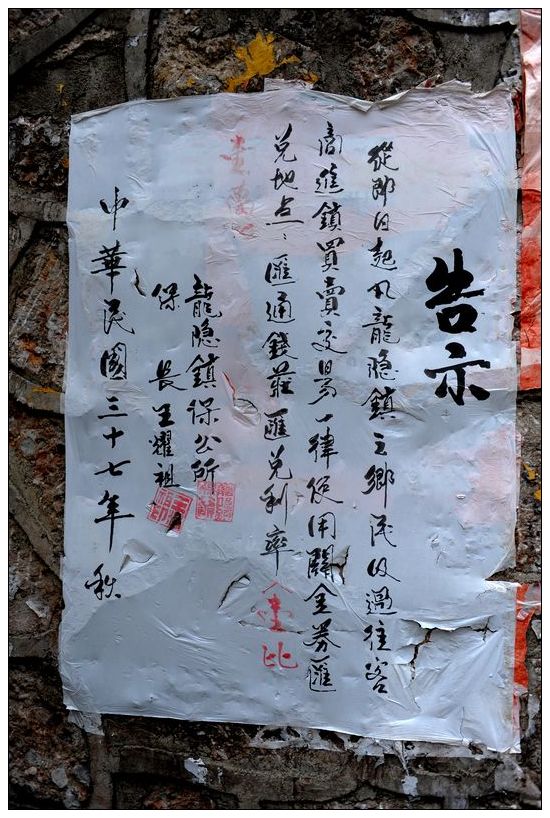 告示
從即日起凡龍隐鎮之鄉民及過往客
商進鎮買賣交易一律使用關金券匯
兌地点：匯通錢莊匯兌利率壹比
龍隐鎮保公所
保長王耀祖
中華民國三十七年秋